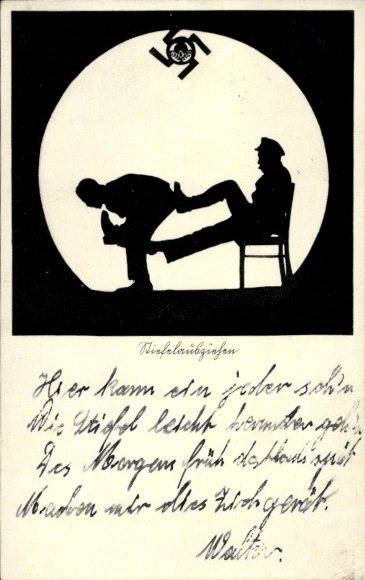 Stiefelausziehen
Hier kann ein jeder seh'n
Wie Stiefel leicht herunter geh'n
Des Morgens früh spät
Machen wir dies Ziehgerät.
Walter.